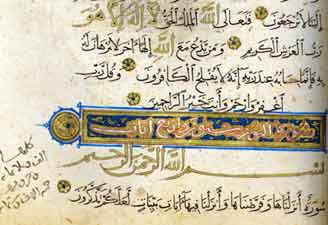 إلينا لا ترجعون فتعالى الله الملك الحق لا إله إلا هو
رب العرش الكريم ومن يدع مع الله إلها آخر لا برهان له
به فإنما حسابه عند ربه إنه لا يفلح الكافرون وقل رب
اغفر وارحم وأنت خير الراحمين
سورة النور ستون واربع آيات
بسم الله الرحمن الرحيم
سورة أنزلناها وفرضناها وأنزلنا فيها آيات بينات لعلكم تذكرون